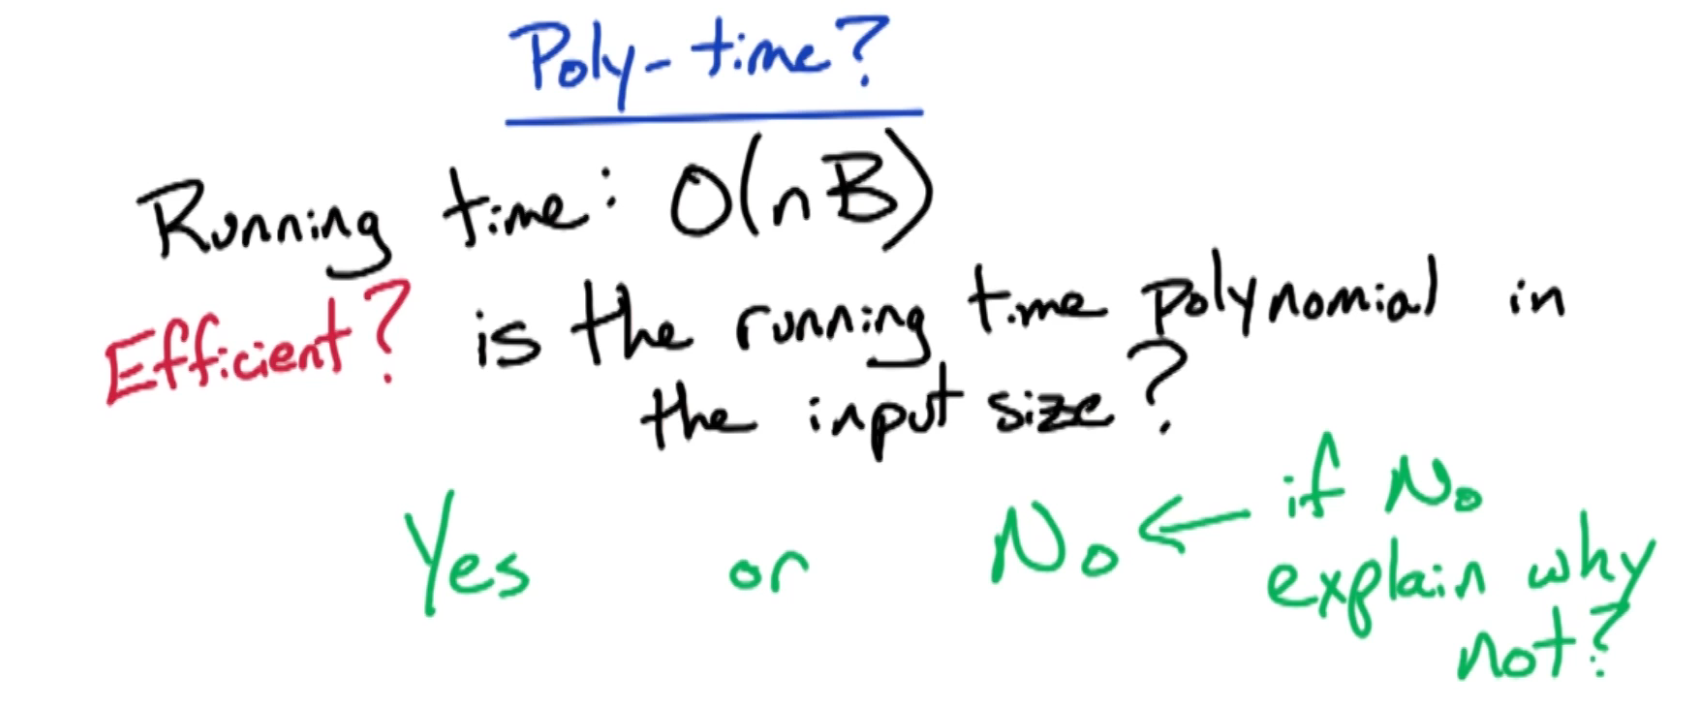 Poly-time?
Running time: O(nB)
Efficient? is the running time polynomial in
the input size?
Yes or No ← if No
explain why
not?